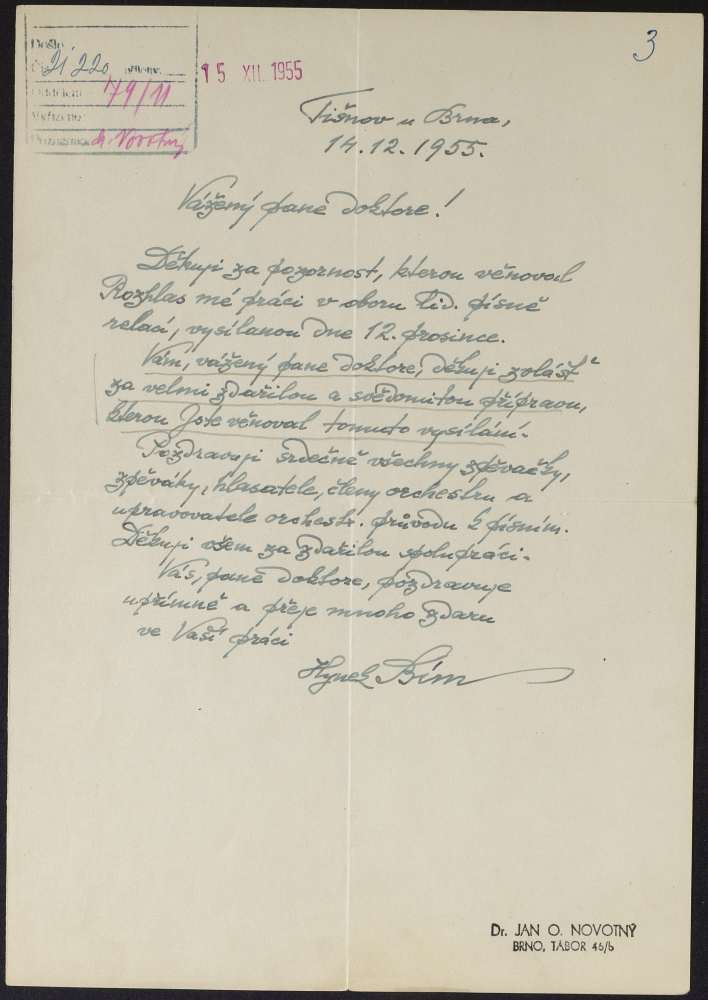 3
Došlo
21220
79/11
Vyřizuje
dr Novotný
15 XII. 1955
Tišnov u Brna,
14.12.1955.
Vážený pane doktore!
Děkuji za pozornost, kterou věnoval
Rozhlas mé práci v oboru lid. písně
relací, vysílanou dne 12. prosince.
Vám, vážený pane doktore, děkuji zvlášť
za velmi zdařilou a svědomitou přípravu,
kterou Jste věnoval tomuto vysílání.
Pozdravuji srdečně všechny zpěvačky,
zpěváky, hlasatele, členy orchestru a
upravovatele orchestr. průvodu k písním.
Děkuji všem za zdařilou spolupráci.
Vás, pane doktore, pozdravuje
upřímně a přeje mnoho zdaru
ve Vaší práci
Hynek Bím
Dr. JAN O. NOVOTNÝ
BRNO, TÁBOR 46/b